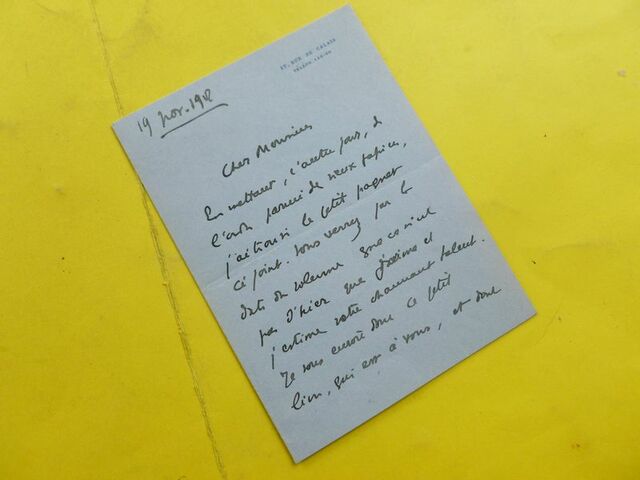 17, RUE DE CALAIS
19 Nov. 1912
Cher Monsieur,
En mettant, l'autre jour, de
l'ordre parmi de vieux papiers,
j'ai trouvé le petit paquet
ci joint. Vous verrez par la
date du volume que ce n'est
pas d'hier que j'aime et
j'estime votre charmant talent.
Je vous envoie donc ce petit
livre, qui est à vous, et dont